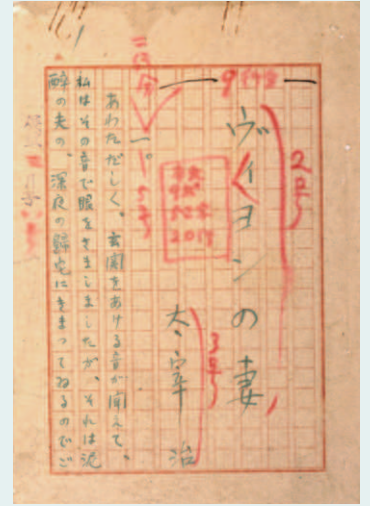 9行分
ヴィヨンの妻
2号
太宰治
3号
二行分
一。
5号
あわただしく、玄関をあける音が聞えて、
私はその音で眼をさましましたが、それは泥
酔の夫の、深夜の帰宅にきまってゐるのでご